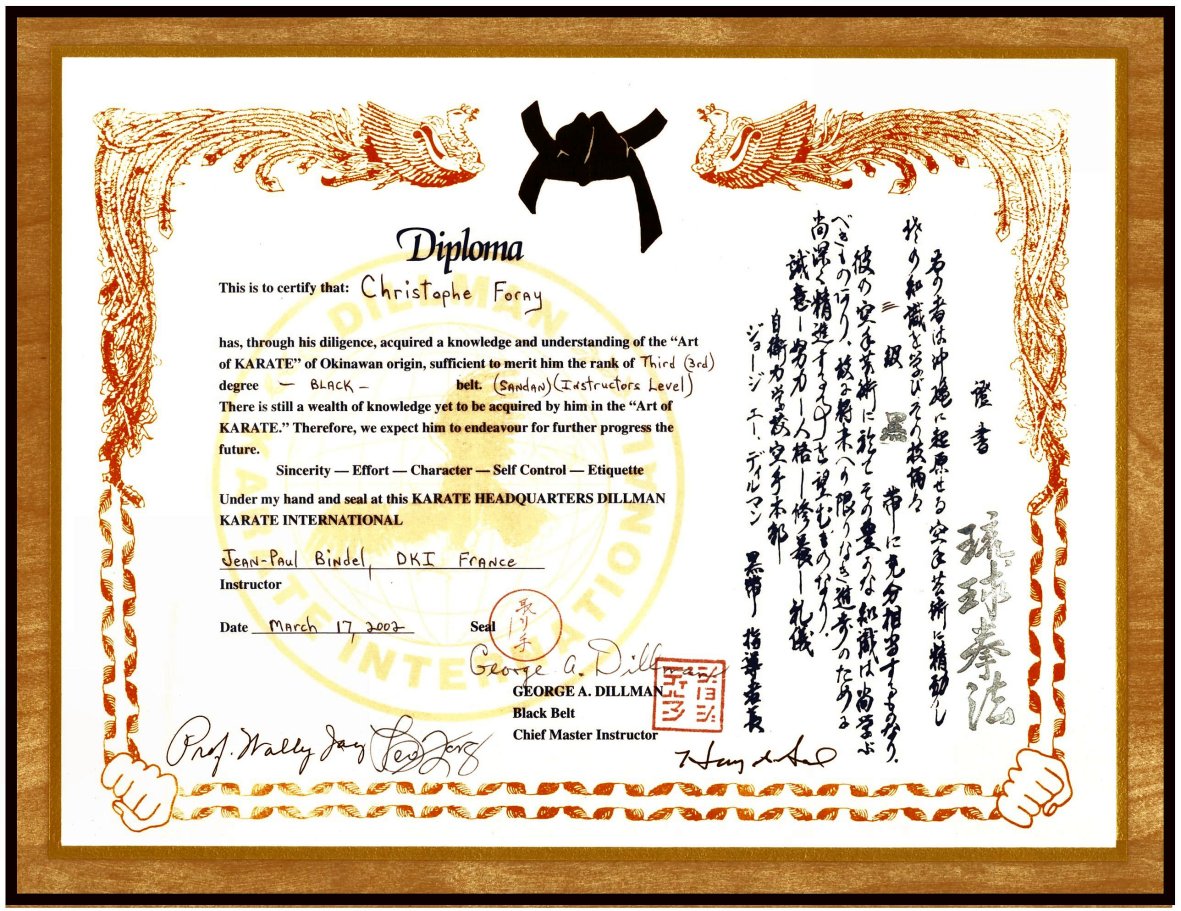 Diploma
This is to certify that: Christophe Foray
has, through his diligence, acquired a knowledge and understanding of the “Art
of KARATE” of Okinawan origin, sufficient to merit him the rank of Third (3rd)
degree — BLACK — belt. (SANDAN) (Instructors Level)
There is still a wealth of knowledge yet to be acquired by him in the “Art of
KARATE.” Therefore, we expect him to endeavour for further progress the
future.
Sincerity — Effort — Character — Self Control — Etiquette
Under my hand and seal at this KARATE HEADQUARTERS DILLMAN
KARATE INTERNATIONAL
Jean-Paul Bindel, DKI France
Instructor
Date March 17, 2002 Seal
George A. Dillman
GEORGE A. DILLMAN
Black Belt
Chief Master Instructor
Prof. Wally Jay
DILLMAN
KARATE INTERNATIONAL
琉球拳法
證書
右の者は沖縄に起原せる空手芸術に精励し
その知識を学びその技術
三級 黒 帯に充分相当するものなり。
彼の空手芸術に於てその豊かな知識は尚学ぶ
べきものあり、故に将来への限りなき進歩のために
尚深く精進する事を望むものなり。
誠意—努力—人格—修養—礼儀
自衛力学校空手本部
ジョージ エー、ディルマン 黒帯 指導者長
ジョージ
ディルマン